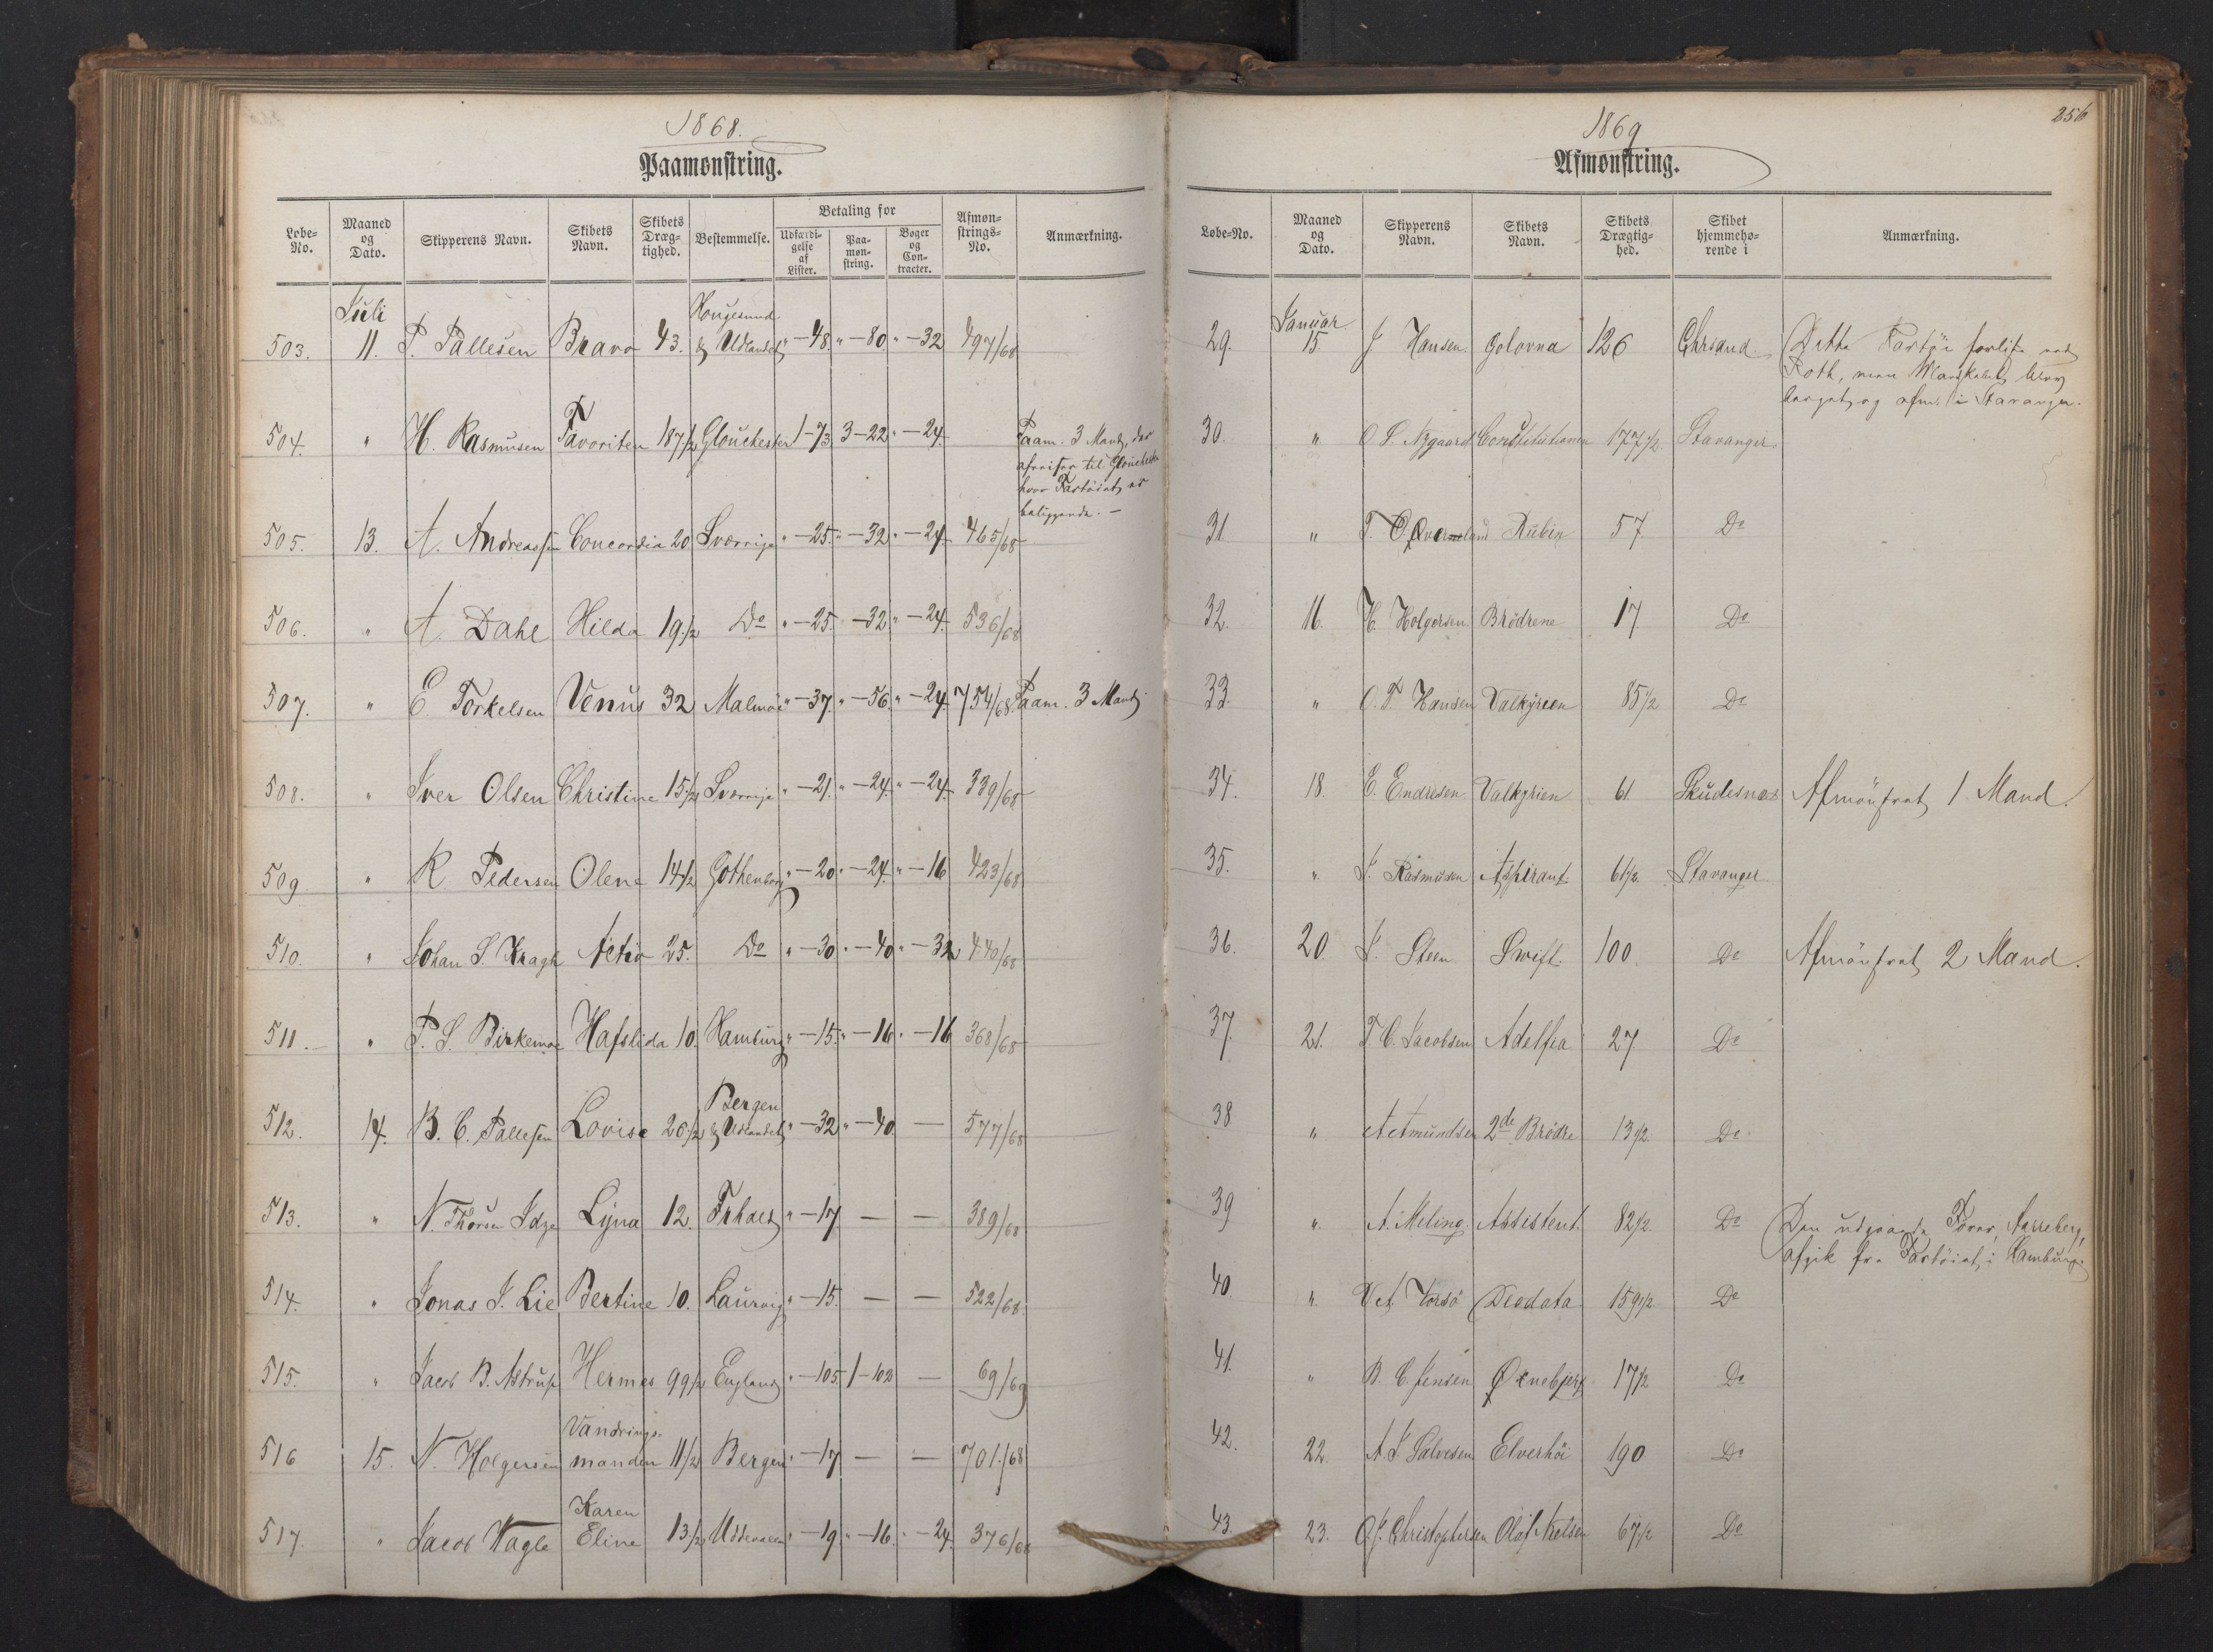 1868.
Paamønstring.
Løbe-No. | Maaned og Dato. | Skipperens Navn. | Skibets Navn. | Skibets Dræg-tighed. | Bestemmelse. | Betaling for | Udfærdi-gelse af Lister. | Paa-møn-string. | Bøger og Con-tracter. | Afmøn-strings-No. | Anmærkning.
Juli
503. 11. P. Pallesen Bravo 43. Hougesund & Udlandet " - 48. " - 80. " - 32 497/68
504. " H. Rasmusen Favoriten 187 1/2 Glouchester 1 - 73 3 - 22 " - 24. Paam. 3 Mand, der
afreiser til Glouchester
hvor Fartöiet er
beliggende. -
505. 13. A. Andreassen Concordia 20 Sverrige " - 25. " - 32 " - 24. 465/68
506. " A. Dahl Hilda 19 1/2 Do " - 25. " - 32. " - 24. 536/68
507. " E. Torkelsen Venus 32 Malmöe " - 37. " - 56. " - 24. 754/68. Paam. 3 Mand
508. " Iver Olsen Christine 15 1/2 Sverrige " - 21. " - 24. " - 24. 339/68
509 " R Pedersen Olene 14 1/2 Gothenborg " - 20. " - 24. " - 16 423/68
510. " Johan S. Kragh Activ 25. Do " - 30 " - 40 " - 32 440/68
511. " P. S. Birkemoe Hafslida 10. Hamburg " - 15. " - 16. " - 16 368/68
512. 14. B. C. Pallesen Lovise 26 1/2 Bergen & Udlandet " - 32 " - 40 - 577/68
513. " N. Thorsen Lyna 12. Frhald " - 17 - - 389/68
514. " Jonas J. Lie Bertine 10. Laurvig " - 15. - - 522/68.
515. " Jacob B. Astrup Hermes 99 1/2 England " - 105. 1 - 102 - 69/69
516 15. N. Holgersen Vandrings-manden 11 1/2 Bergen " - 17 - - 701/68
517. " Jacob Wagle Karen Eline 13 1/2 Uddevalla " - 19 " - 16. " - 24. 376/68
256
1869
Afmønstring.
Løbe-No. | Maaned og Dato. | Skipperens Navn. | Skibets Navn. | Skibets Drægtig-hed. | Skibet hjemmehø-rende i | Anmærkning.
Januar
29. 15 J. Hansen. Golovna 126 Chrsand. Dette Fartöi forliste ved
Roth, men Mandskabet blev
bergat og afm. i Stavanger.
30. " O. S. Nygaard Constitutionen 177 1/2 Stavanger
31 " T. Rubin 57 Do
32. 16. H. Holgersen Brödrene 17 Do
33. " O. T. Hansen Valkyrien 85 1/2 Do
34. 18. E. Endresen. Valkyrien 61 Skudesnæs Afmönstret 1 Mand.
35. " J. Rasmusen Aspirant 61 1/2. Stavanger
36. 20. J. Steen Swift. 100 Do Afmönstret 2 Mand.
37. 21. T. C. Jacobsen Adelfia 27 Do
38 " A Amundsen 2de Brödre 13 1/2 Do
39 " A. Meling. Assistent. 82 1/2 Do Den udgaaede Förer, Aarreberg,
afgik fra Fartöiet i Hamburg.
40. " Deodata 159 1/2 Do
41. " B. C. Jensen Øxnebjerg 17 1/2 Do
42. 22. A. S. Salvesen Elverhöi 190 Do
43. 23. O. J. Christophersen Olaf Kielsen 67 1/2 Do